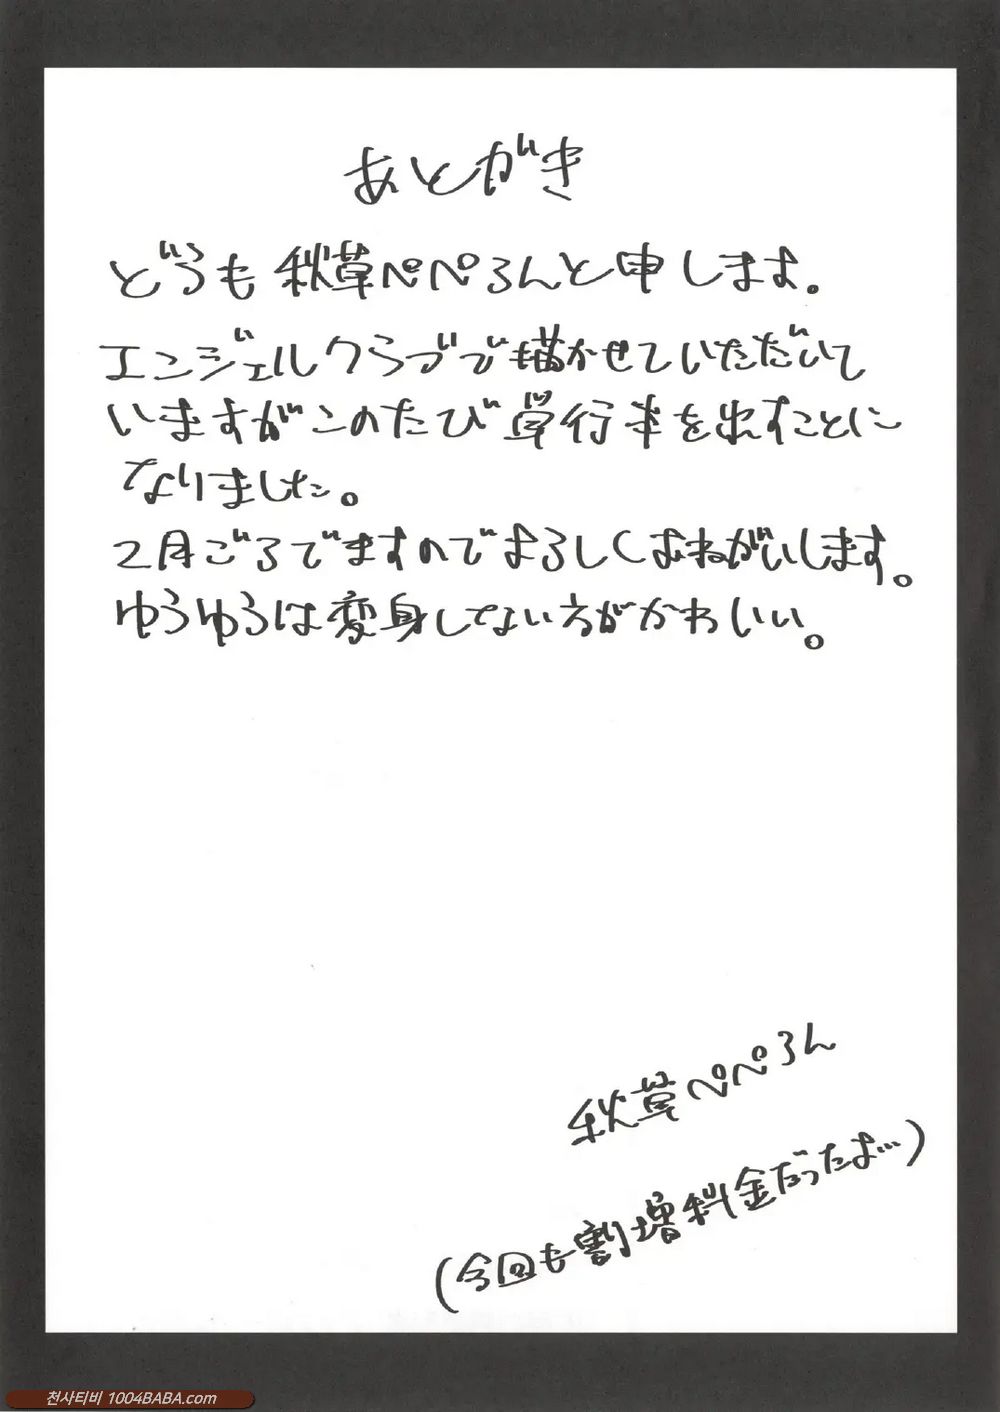 あとがき
どうも秋草ぺぺろんと申します。
エンジェルクラブで描かせていただいて
いますがこのたび単行本を出すことに
なりました。
2月ごろでますのでよろしくおねがいします。
ゆうゆうは変身してない方がかわいい。
秋草ぺぺろん
(今回も割増料金だったよ…)
천사티비 1004BABA.com